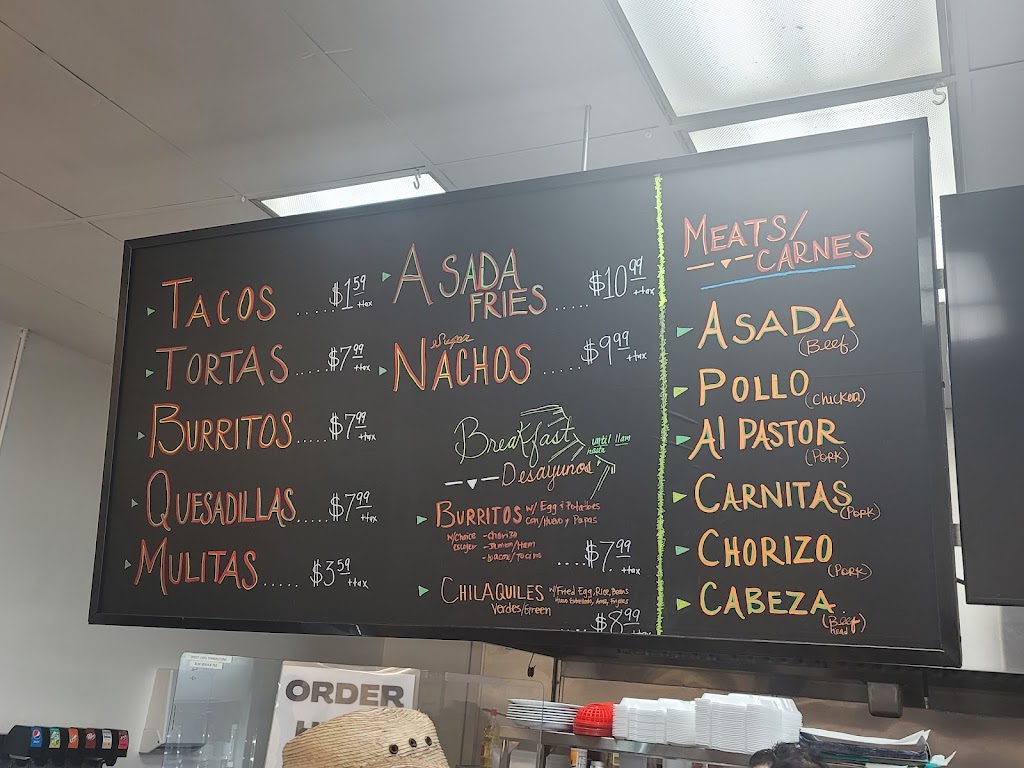 TACOS ..... $1.59 +tax
TORTAS .... $7.99 +tax
BURRITOS .... $7.99 +tax
QUESADILLAS .... $7.99 +tax
MULITAS ...... $3.59 +tax
ASADA
FRIES .... $10.99 +tax
Super
NACHOS ..... $9.99 +tax
Breakfast until 11am
hasta
Desayunos
BURRITOS w/ Egg & Potatoes
con/Huevo y Papas
w/choice - chorizo
escojer - Jamon/Ham
- bacon/
.... $7.99 +tax
CHILAQUILES w/Fried Egg, Rice, Beans
Huevo Estrellado, Arroz, Frijoles
Verdes/Green
.... $8.99 +tax
MEATS/
CARNES
ASADA
(Beef)
POLLO (chicken)
Al PASTOR
(Pork)
CARNITAS
(Pork)
CHORIZO
(Pork)
CABEZA
(Beef
head)
ORDER
pepsi